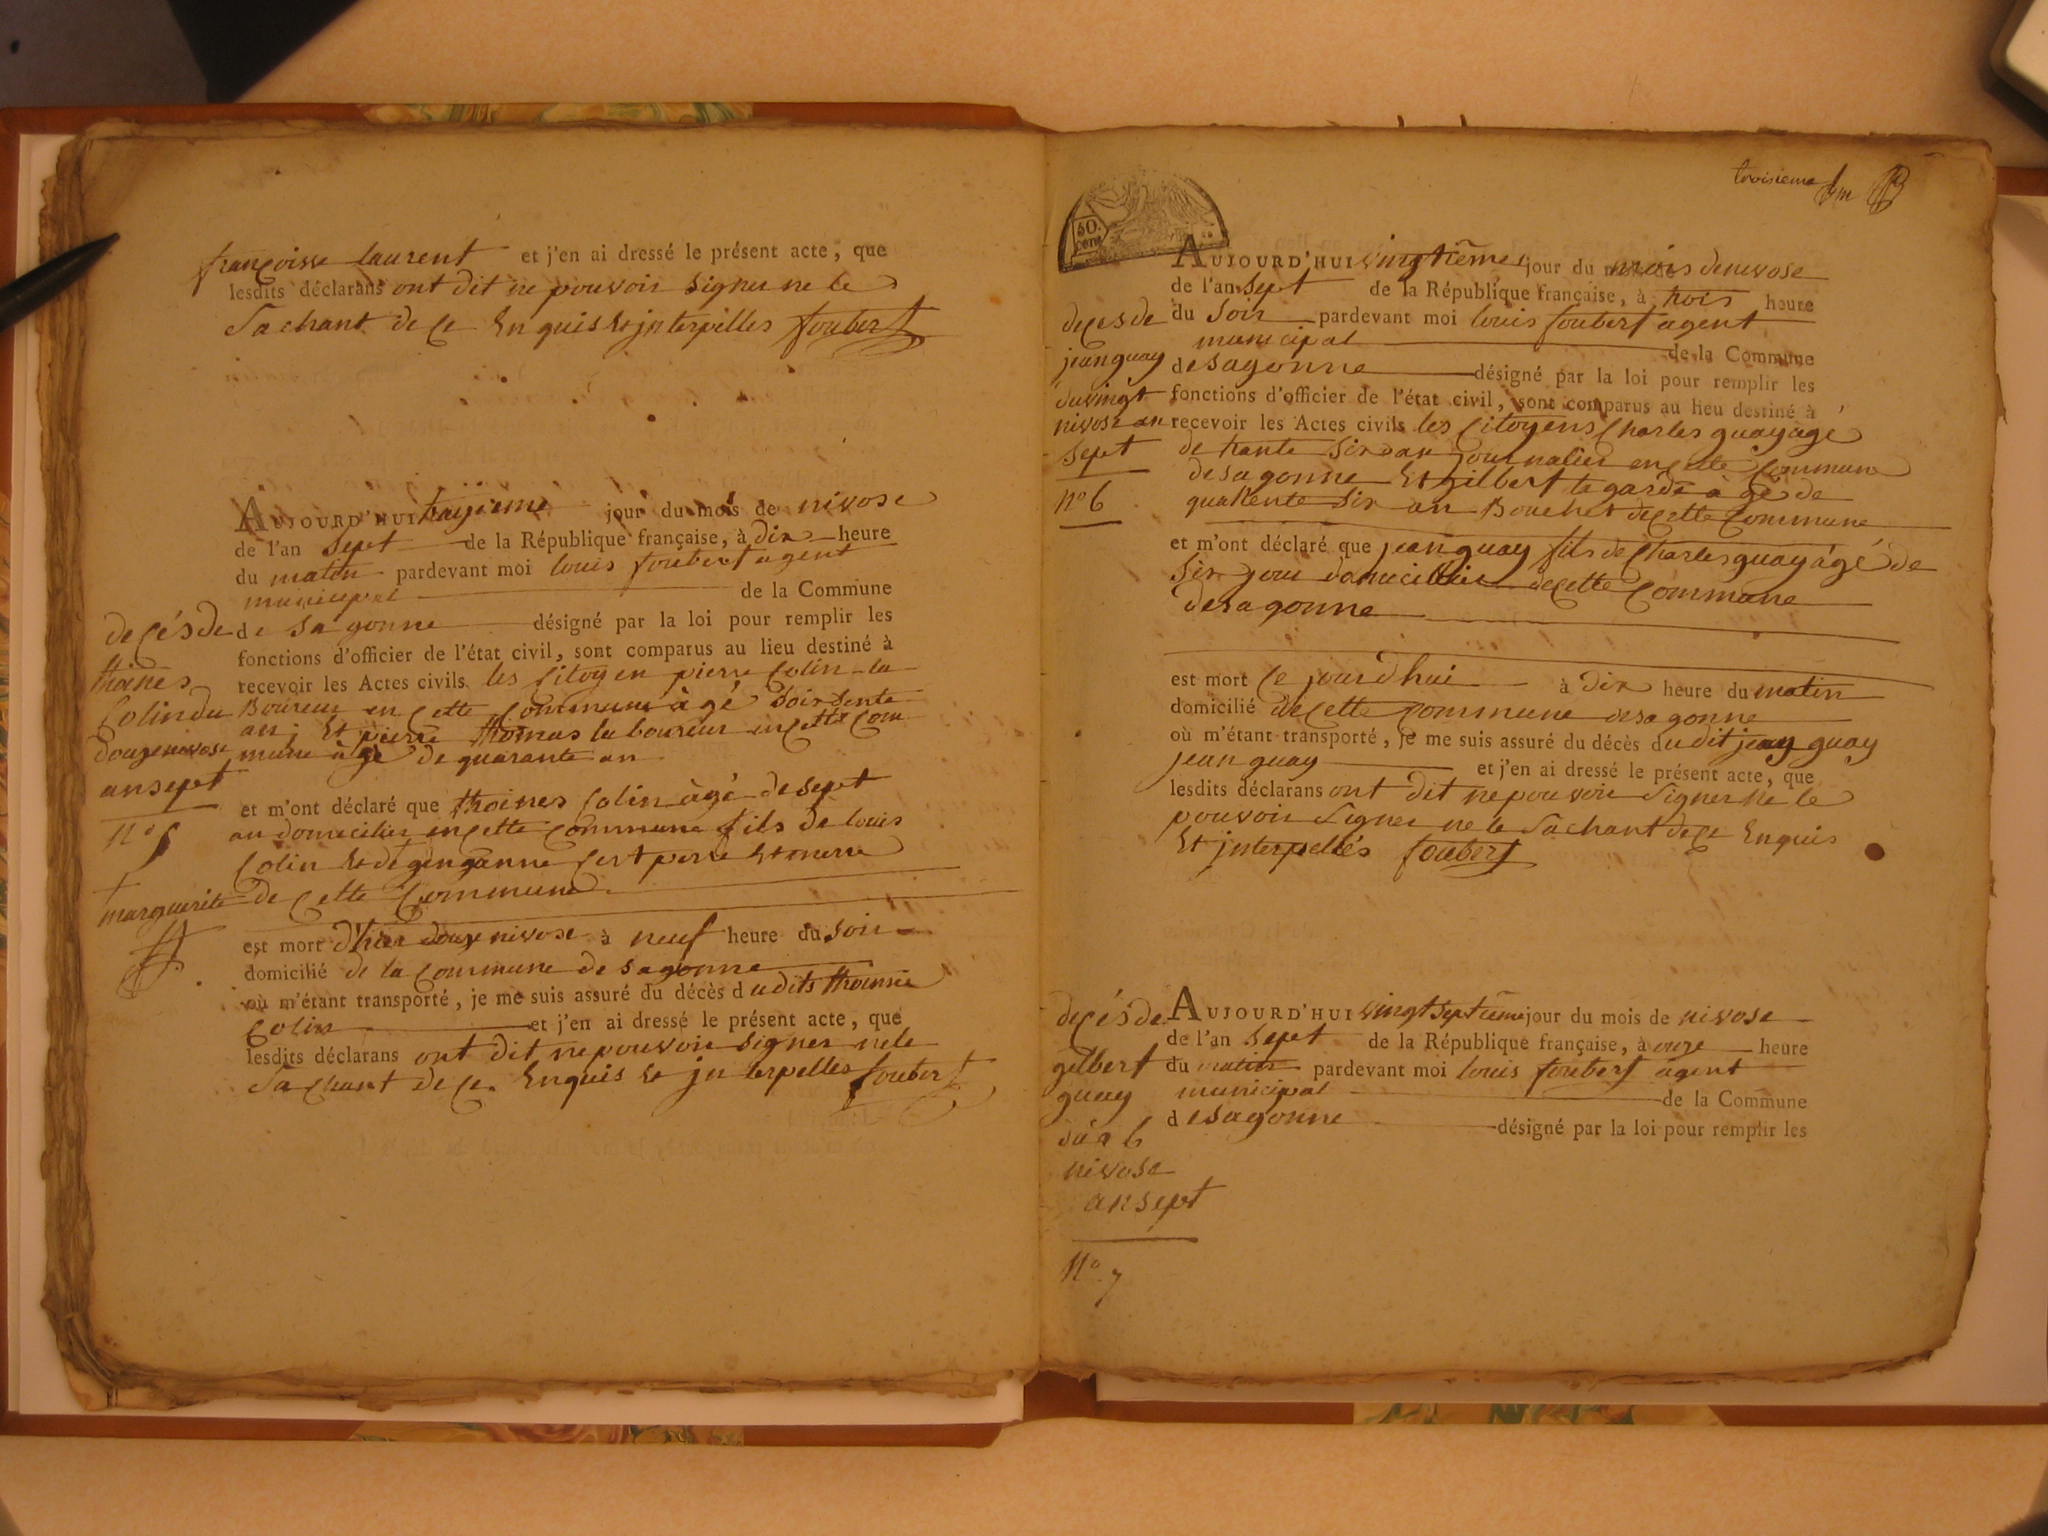 françoisse laurent et j'en ai dressé le présent acte, que
lesdits déclarans ont dit ne pouvoir signer ne le
Sachant de ce Enquis Et jnterpelles foubert
AUJOURD'HUI traizieme jour du mois de nivose
de l'an sept de la République française, à dix heure
du matin pardevant moi louis foubert agent
municipal de la Commune
de sagonne désigné par la loi pour remplir les
fonctions d'officier de l'état civil, sont comparus au lieu destiné à
recevoir les Actes civils les Citoyen pierre Colin la
Boureur en Cette Commune àgé
an Et pierre thomas laboureur en Cette Com
mune àgé de quarante an
et m'ont déclaré que thoines Colin àgé de sept
an domecilier en Cette Commune fils de louis
Colin Et de perre Et merre
de Cette Commune
est mort d'hier douze nivose à neuf heure du Soir
domicilié de la Commune de sagonne
où m'étant transporté, je me suis assuré du décès dudits
Colin et j'en ai dressé le présent acte, que
lesdits déclarans ont dit ne pouvoir signer ne le
Sachant de ce Enquis Et jnterpelles foubert
deçés de
thoines
Colin du
douze nivose
an sept
n° 5
marguerite
troisieme
50.
cent
AUJOURD'HUI vingtième jour du mois de nivose
de l'an sept de la République française, à trois heure
du Soir pardevant moi louis foubert agent
municipal de la Commune
de sagonne désigné par la loi pour remplir les
fonctions d'officier de l'état civil, sont comparus au lieu destiné à
recevoir les Actes civils les Citoyens Charles guay àgé
de trante Six an journalier en Cette Commune
de sagonne Et gilbert lagarde àgé de
quarente Six an Boucher de Cette Commune
et m'ont déclaré que jean guay fils de Charles guay àgé de
Six jour domicillier de Cette Commune
de sagonne
est mort Ce jourdhui à dix heure du matin
domicilié de Cette Commune de sagonne
où m'étant transporté, je me suis assuré du décès dudit jean guay
jean guay et j'en ai dressé le présent acte, que
lesdits déclarans ont dit ne pouvoir Signer ne le
pouvoir Signer ne le Sachant de ce Enquis
Et jnterpellés foubert
deçes de
jean guay
du vingt
nivose an
sept
n° 6
AUJOURD'HUI vingt Septième jour du mois de nivose
de l'an sept de la République française, à onze heure
du matin pardevant moi louis foubert agent
municipal de la Commune
de sagonne désigné par la loi pour remplir les
deçés de
gilbert
guay
du 26
nivose
an sept
n° 7